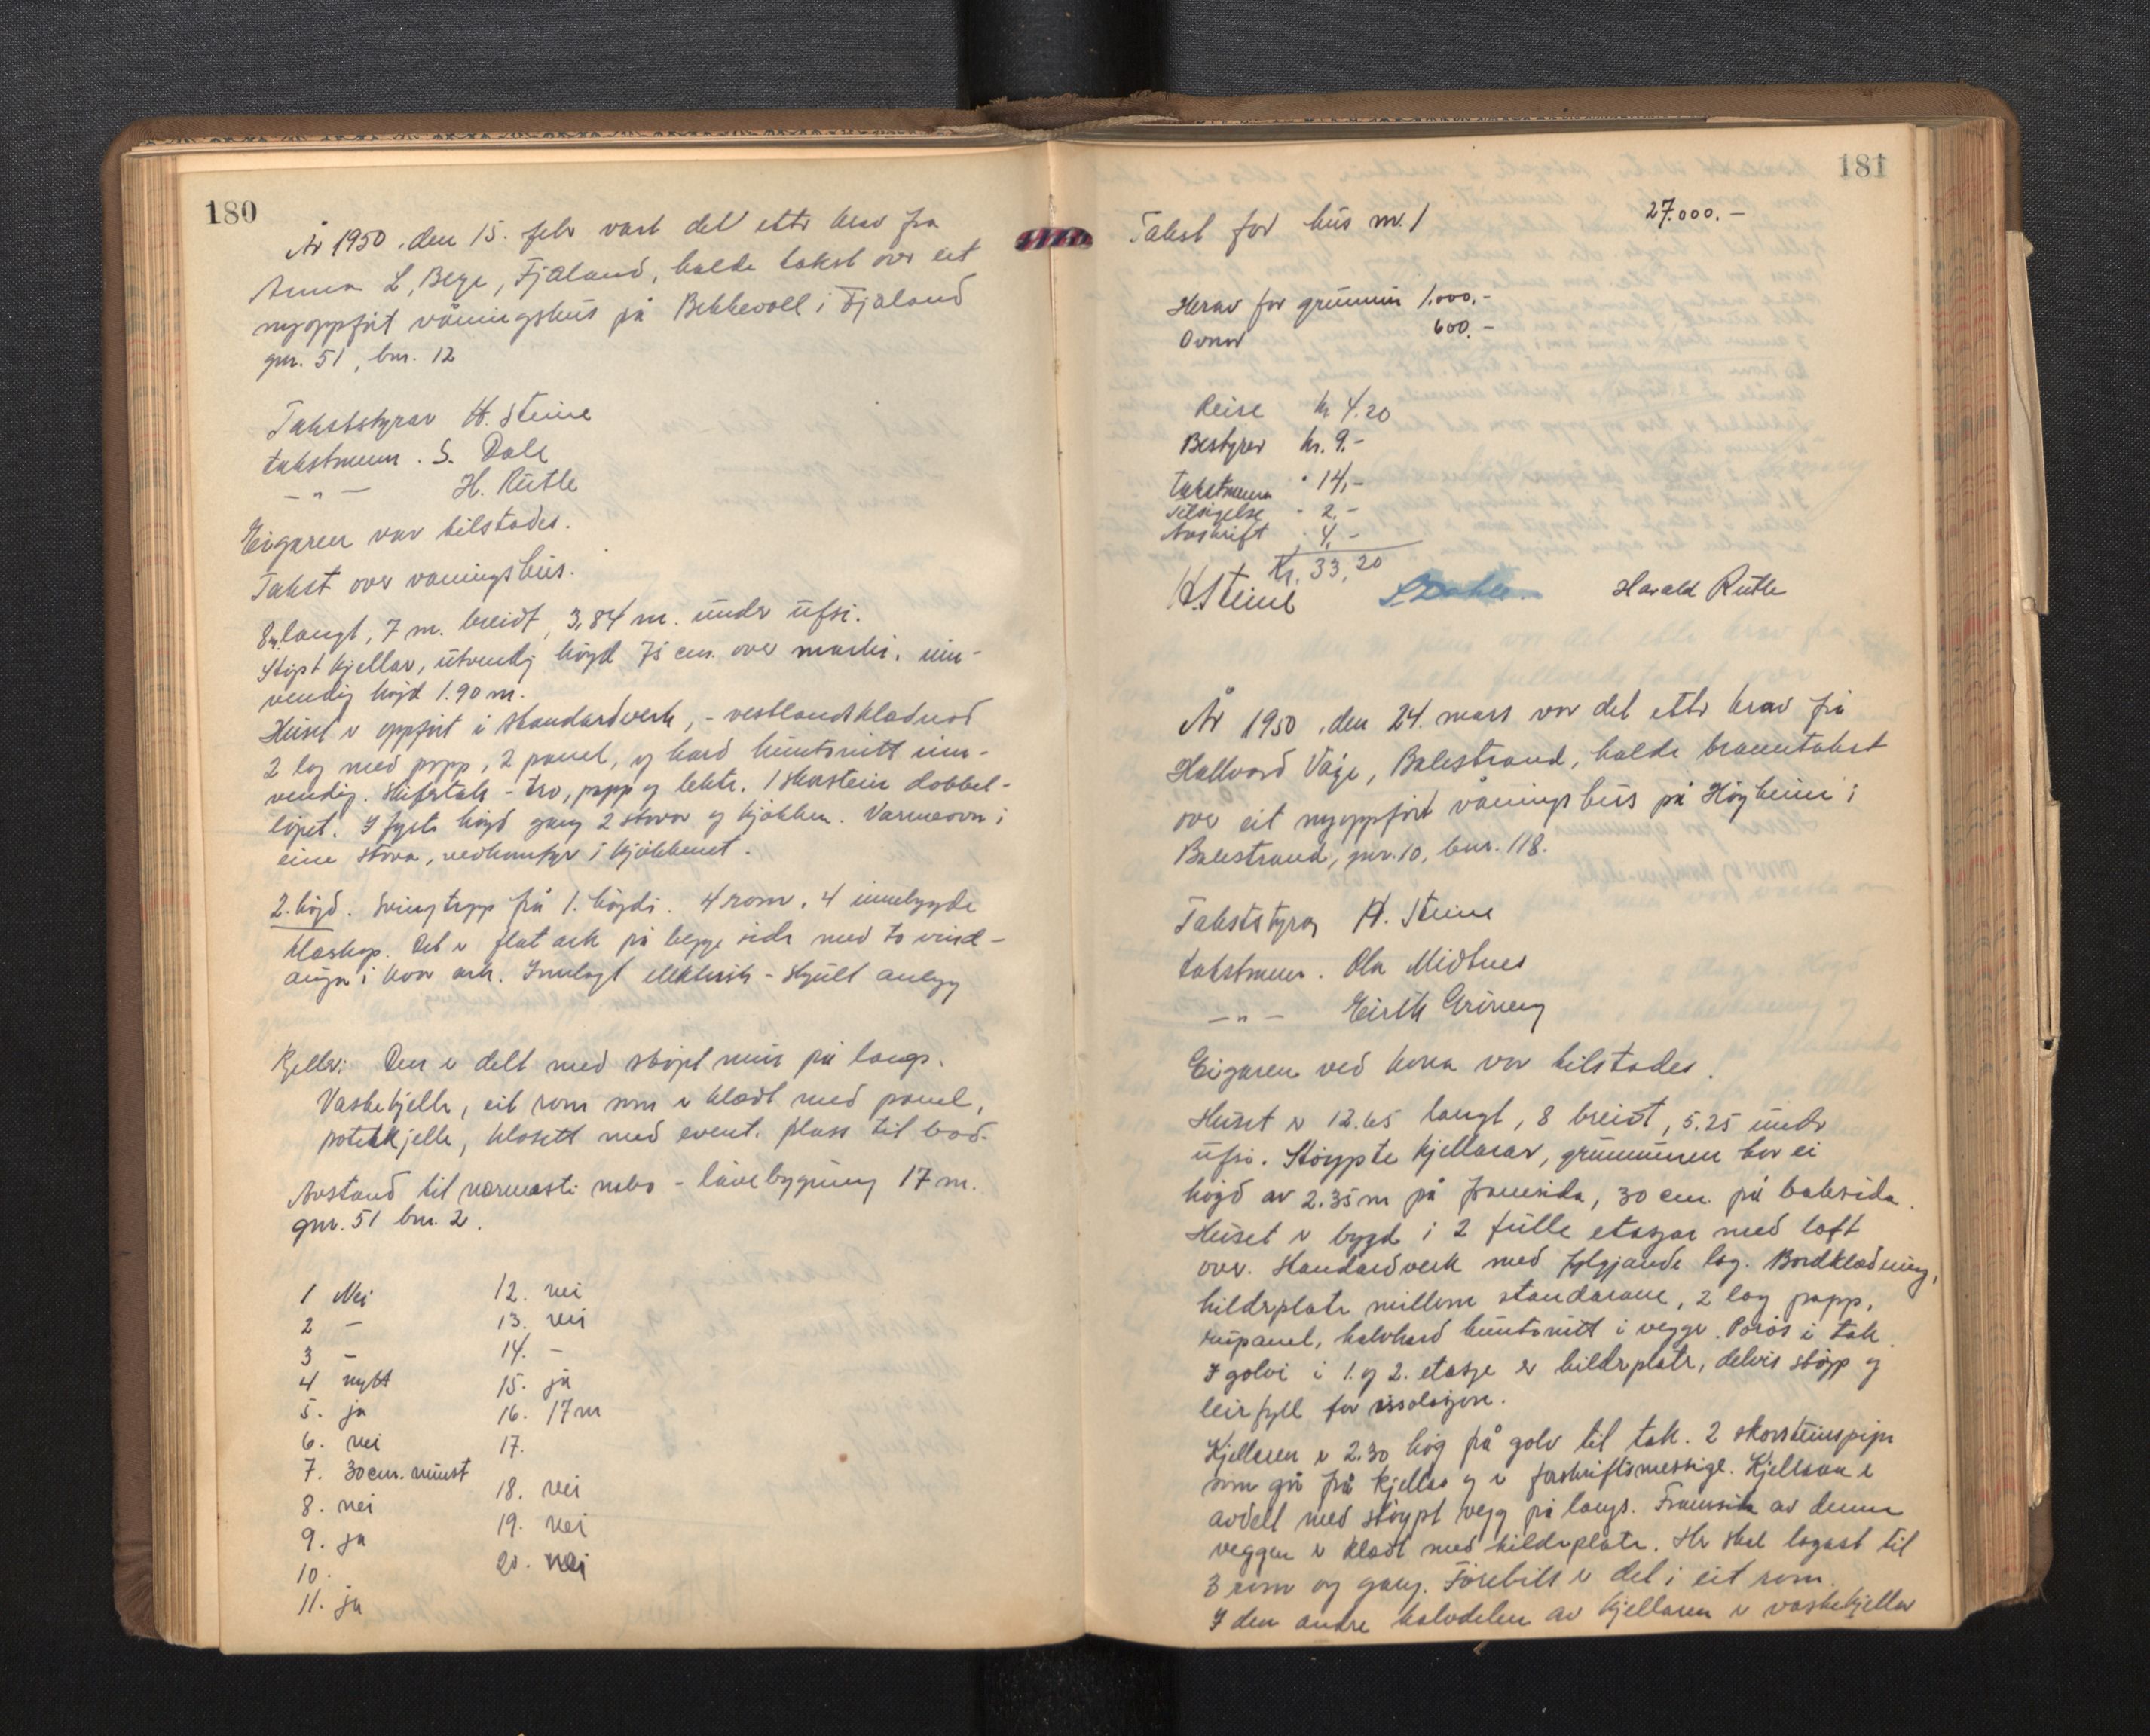 180
År 1950, den 15. febr vart det ettr krav fra
Anna L. Berge, Fjærland, halde takst over eit
nyoppført våningshus på Bekkevoll i Fjærland
gnr. 51, bnr. 12
Takststyrar H. Steine
takstmenn. S. Dale
– " – H. Rutle
Eigaren var tilstades.
Takst over våningshus.
8 m langt, 7 m. breidt, 3,84 m. under ufsi.
Støpt kjellar, utvendig høgd 75 cm. over marki, inn-
vendig høgd 1.90 m.
Huset er oppført i standardverk, - vestlandskladnad
2 lag med papp, 2 panel, og hard huntonitt inn-
vendig. Skifertak - tro, papp og lektr. 1 skorstein dobbel-
løpet. I fyrste høgd gang 2 stover og kjøkken. Varmeovn i
eine stova, vedkomfyr i kjøkkenet.
2. høgd. Svingtrapp frå 1. høgdi. 4 rom, 4 innebygde
klæskap. Det er flat ark på begge sidr med to vind-
augo i kvar ark. Innlagt elektrisk - skjult anlegg
Kjellr: Den er delt med støypt mur på langs.
Vaskekjellr, eit rom som er klædt med panel,
potetkjellr, klosett med event. plass til bad.
Avstand til nærmaste nabo - låvebygning 17 m.
gnr. 51 bnr. 2.
1 Nei
2 –
3 –
4 nytt
5. ja
6. nei
7. 30 cm. minst
8. nei
9. ja
10.
11. ja
12. nei
13. nei
14. –
15. ja
16. 17 m
17.
18. nei
19. nei
20. nei
181
Takst for hus nr. 1 27.000.–
Herav for grunnmur 1.000.–
Ovnar 600.–
Reise kr 4.20
Bestyrer kr. 9.–
Takstmenn " 14,–
Tilsigelse " 2.–
Avskrift " 4,–
Kr. 33,20
H. Steine S. Dahle Harald Rutle
År 1950, den 24. mars var det ettr krav frå
Hallvard Våge, Balestrand, halde branntakst
over eit nyoppført våningshus på Høgheim i
Balestrand, gnr. 10, bnr. 118.
Takststyrar H. Steine
takstmenn. Ola Midtnes
– " – Eirik Grinng
Eigaren ved kona var tilstades.
Huset er 12.65 langt, 8 breidt, 5.25 undr
ufsi. Støypte kjellarar, grunnmuren har ei
høgd av 2.35 m på framsida, 30 cm. på baksida.
Huset er bygd i 2 fulle etasjar med loft
over. Standardverk med fylgjande lag. Bordklædning,
hildrplatr millom standarane, 2 lag papp,
rupanel, halvhard huntonitt i veggr. Porøs i tak.
I golvi i 1. og 2. etasje er hildrplatr, delvis støyp og
leirfyll for issolasjon.
Kjellaren er 2.30 høg frå golv til tak. 2 skorsteinspipr
som går frå kjellar og er forskriftsmessige. Kjellaren er
avdelt med støypt vegg på langs. Framsida av denne
veggen er klædt med hildrplatr. Her skal lagast til
3 rom og gang. Førebils er det i eit rom.
I den andre halvdelen av kjellaren er vaskekjellar